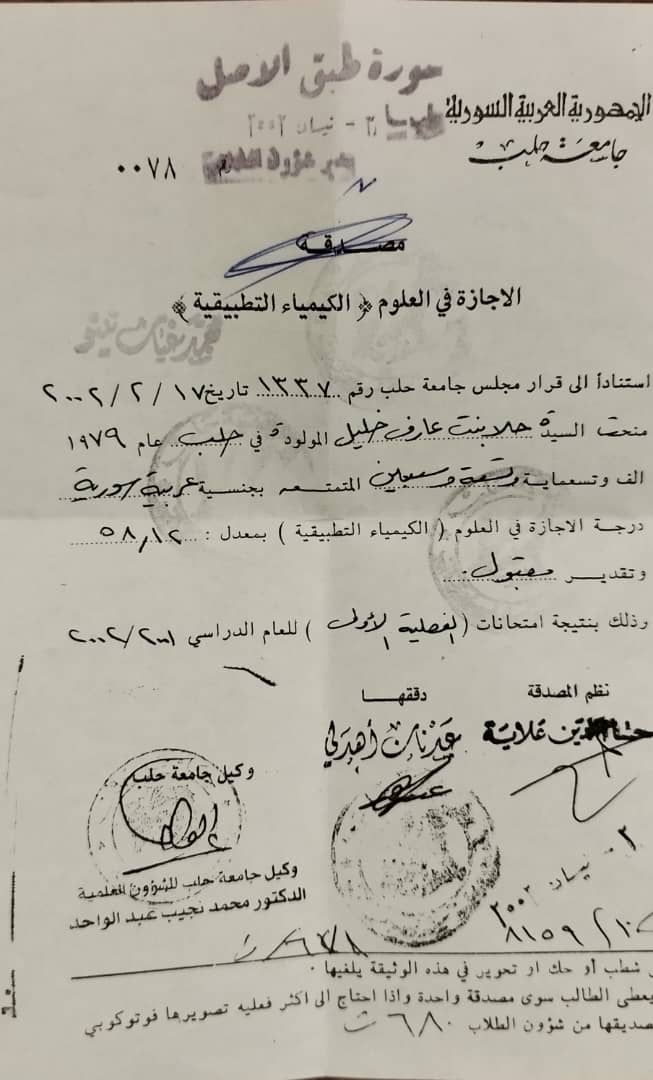 صورة طبق الاصل
الجمهورية العربية السورية
جامعة حلب
نيسان ٢٠٠٢
مدير شؤون الطلاب
٠٠٧٨
مصدقة
الاجازة في العلوم ﴿ الكيمياء التطبيقية ﴾
استناداً الى قرار مجلس جامعة حلب رقم ١٣٣٧ تاريخ ١٧ / ٢ / ٢٠٠٢
منحت السيدة حلا بنت عارف خليل المولودة في حلب عام ١٩٧٩
الف وتسعماية وتسعة وسبعين المتمتعه بجنسية عربية سورية
درجة الاجازة في العلوم ( الكيمياء التطبيقية ) بمعدل : ٥٨,١٢
وتقدير مقبول .
وذلك بنتيجة امتحانات ( الفصلية الأولى ) للعام الدراسي ٢٠٠١/٢٠٠٢
نظم المصدقة
دققها
علاية
عدنان أهدلي
وكيل جامعة حلب
وكيل جامعة حلب للشؤون العلمية
الدكتور محمد نجيب عبد الواحد
نيسان ٢٠٠٢
شطب أو حك او تحوير في هذه الوثيقة يلغيها .
يعطى الطالب سوى مصدقة واحدة واذا احتاج الى اكثر فعليه تصويرها فوتوكوبي
تصديقها من شؤون الطلاب ٦٨٠